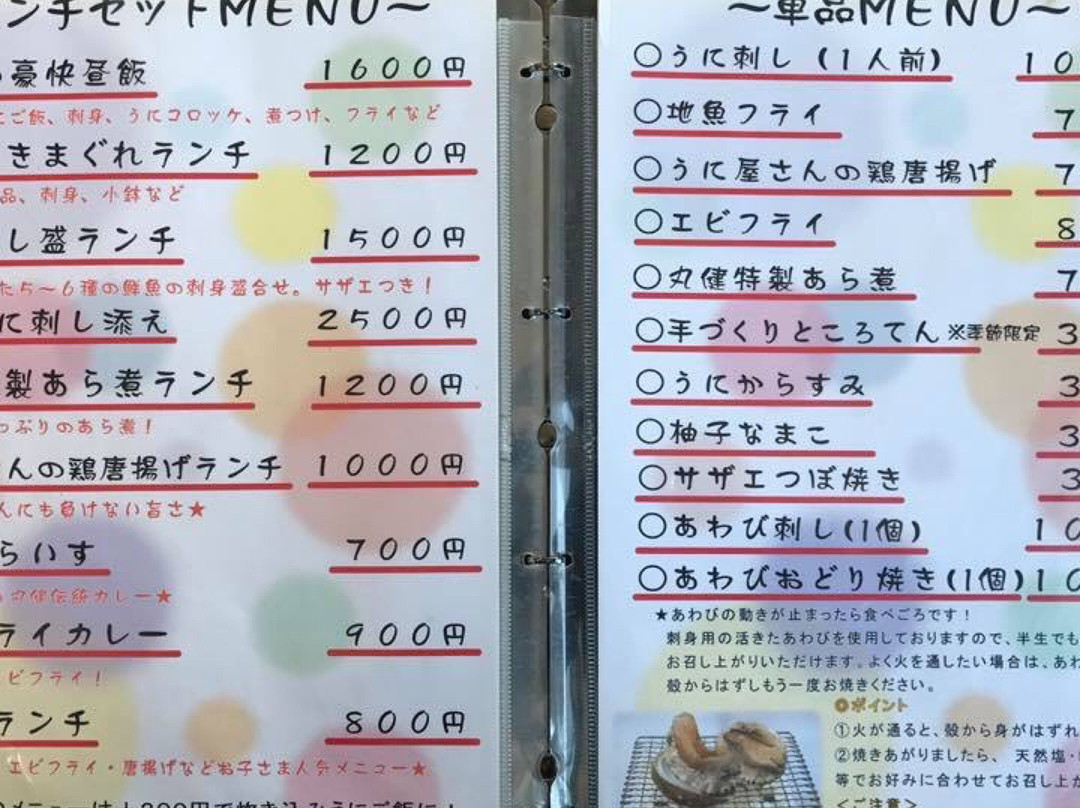 ンチセットMENU～
豪快昼飯 1600円
ご飯、刺身、うにコロッケ、煮つけ、フライなど
きまぐれランチ 1200円
品、刺身、小鉢など
し盛ランチ 1500円
た5～6種の鮮魚の刺身盛合せ。サザエつき！
に刺し添え 2500円
製あら煮ランチ 1200円
っぷりのあら煮！
んの鶏唐揚げランチ 1000円
んにも負けない旨さ★
らいす 700円
丸健伝統カレー★
ライカレー 900円
ビフライ！
ランチ 800円
エビフライ・唐揚げなどお子さま人気メニュー★
メニューは＋300円で炊き込みうにご飯に！
～単品MENU～
○うに刺し（1人前） 10
○地魚フライ 7
○うに屋さんの鶏唐揚げ 7
○エビフライ 8
○丸健特製あら煮 7
○手づくりところてん ※季節限定 3
○うにからすみ 3
○柚子なまこ 3
○サザエつぼ焼き 3
○あわび刺し(1個) 10
○あわびおどり焼き(1個) 10
★あわびの動きが止まったら食べごろです！
刺身用の活きたあわびを使用しておりますので、半生でも
お召し上がりいただけます。よく火を通したい場合は、あわ
殻からはずしもう一度お焼きください。
◎ポイント
①火が通ると、殻から身がはずれ
②焼きあがりましたら、 天然塩・
等でお好みに合わせてお召し上が
＜ご注意＞